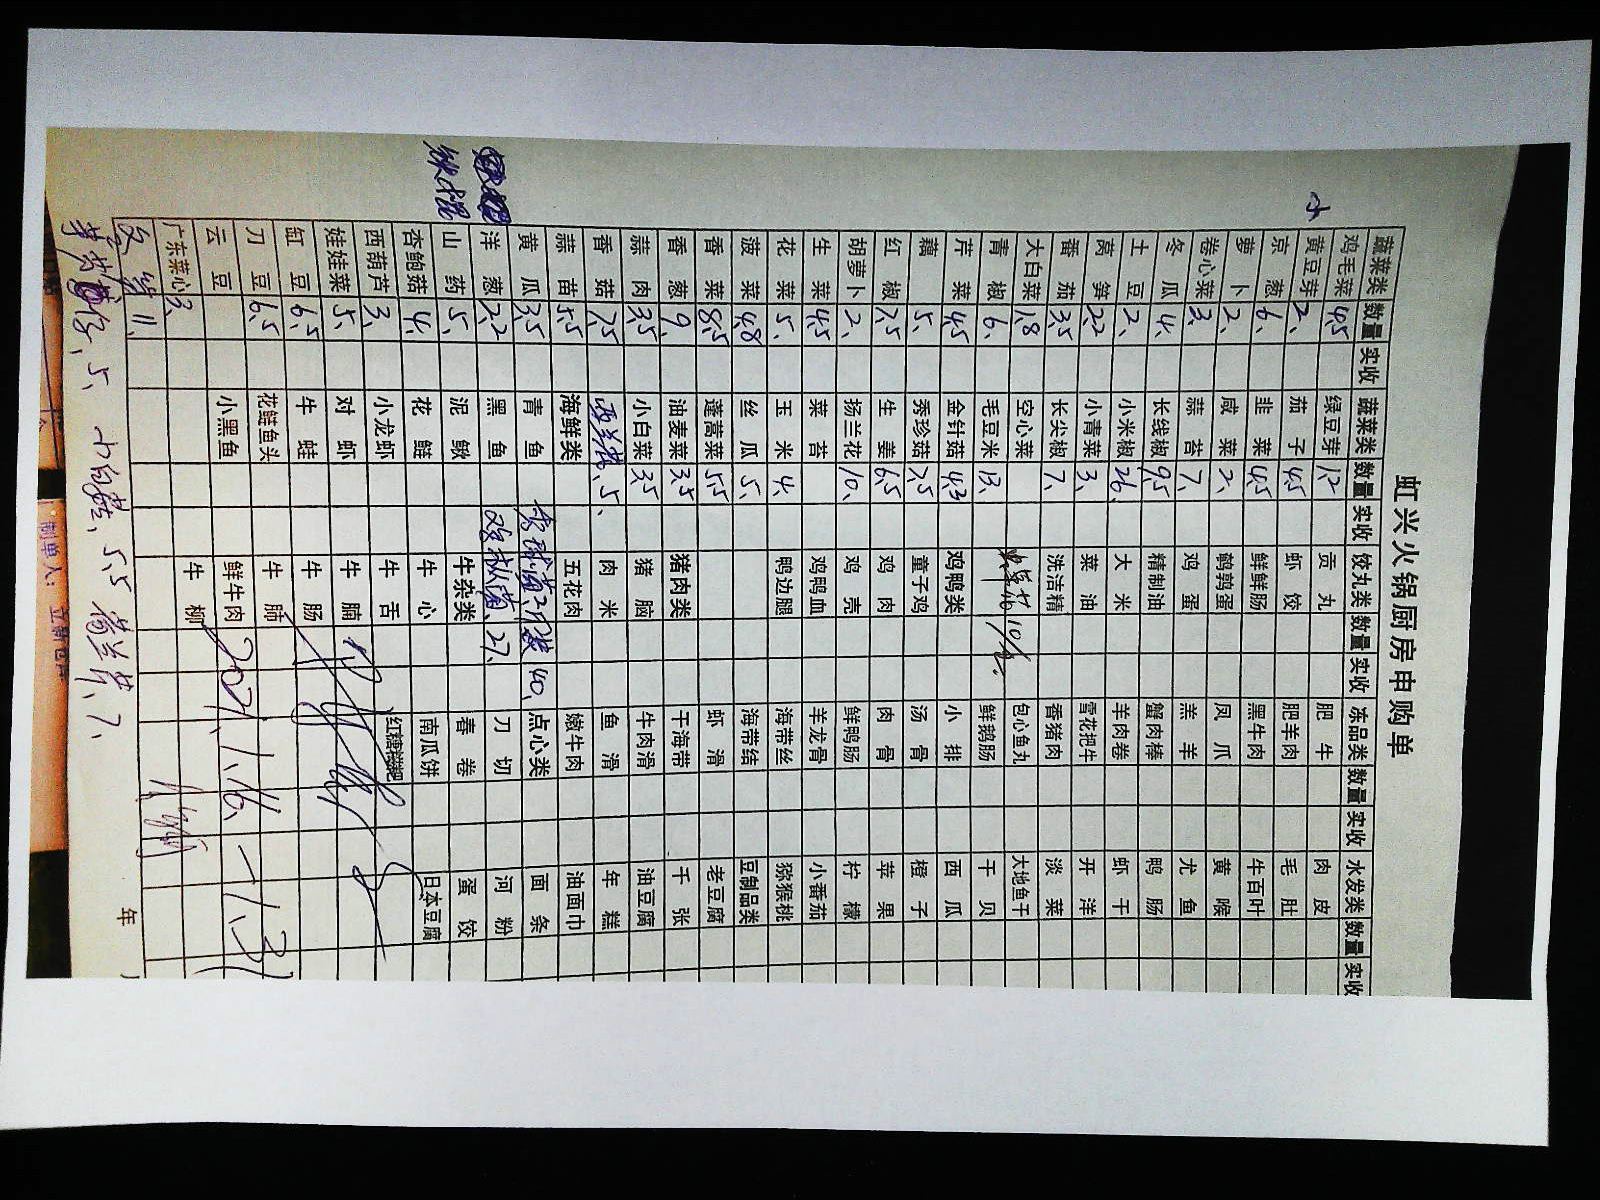 虹兴火锅厨房申购单
蔬菜类 数量 实收 蔬菜类 数量 实收 饺丸类 数量 实收 冻品类 数量 实收 水发类 数量 实收
鸡毛菜 4.5 绿豆芽 1.2 贡丸 肥牛 肉皮
黄豆芽 2、 茄子 4.5 虾饺 肥羊肉 毛肚
京葱 6、 韭菜 4.5 鲜鲜肠 黑牛肉 牛百叶
萝卜 2、 咸菜 2、 鹌鹑蛋 凤爪 黄喉
卷心菜 3、 蒜苔 7、 鸡蛋 羔羊 尤鱼
冬瓜 4、 长线椒 9.5 精制油 蟹肉棒 鸭肠
土豆 2、 小米椒 26、 大米 羊肉卷 虾干
莴笋 2.2 小青菜 3、 菜油 雪花把牛 开洋
番茄 3.5 长尖椒 7、 洗洁精 香猪肉 淡菜
大白菜 1.8 空心菜 包心鱼丸 大地鱼干
青椒 6、 毛豆米 13、 鲜鹅肠 干贝
芹菜 4.5 金针菇 4.3 鸡鸭类 小排 西瓜
藕 5、 秀珍菇 7.5 童子鸡 汤骨 橙子
红椒 7.5 生姜 6.5 鸡肉 肉骨 苹果
胡萝卜 2、 扬兰花 10、 鸡壳 鲜鸭肠 柠檬
生菜 4.5 菜苔 鸡鸭血 羊龙骨 小番茄
花菜 5、 玉米 4、 鸭边腿 海带丝 猕猴桃
菠菜 4.8 丝瓜 5、 海带结 豆制品类
香菜 8.5 蓬蒿菜 5.5 虾滑 老豆腐
香葱 9、 油麦菜 3.5 猪肉类 干海带 千张
蒜肉 3.5 小白菜 3.5 猪脑 牛肉滑 油豆腐
香菇 7.5 西兰苔、5、 肉米 鱼滑 年糕
蒜苗 5.5 海鲜类 五花肉 嫩牛肉 油面巾
黄瓜 3.5 青鱼 40、 点心类 面条
洋葱 2.2 黑鱼 27、 牛杂类 刀切 河粉
山药 5、 泥鳅 牛心 春卷 蛋饺
杏鲍菇 4、 花鲢 牛舌 南瓜饼 日本豆腐
西葫芦 3、 小龙虾 牛腩 红糖糍粑
娃娃菜 5、 对虾 牛肠
缸豆 6.5 牛蛙 牛肺
刀豆 6.5 花鲢鱼头 鲜牛肉
云豆 小黑鱼 牛柳
广东菜心 3、
冬笋 11、
2021、1、16、一1、31
年
制单人：